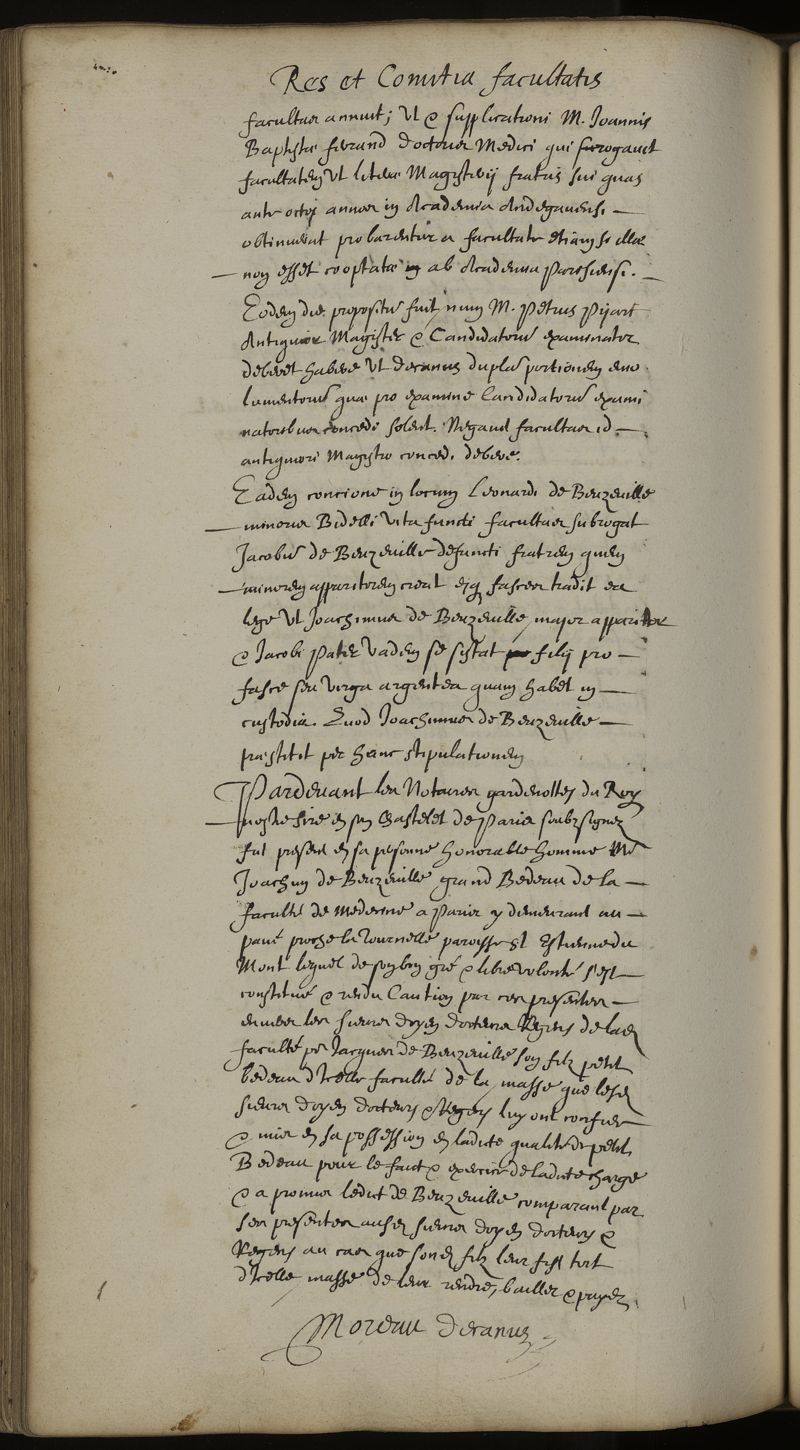 Res et Comitia facultatis
facultas annuit; Ut & supplicationi M. Joannis
Baptistæ ferrand doctoris Medici qui surrogauit
facultatem Ut literæ Magisterij fratris sui quas
ante octo annos in Academia Andegauensi —
obtinuerat probarentur a facultate etiamsi illæ
— non esset cooptatæ in ab Academia Parisiensi. —
Eodem die propositu fuit num M. Petrus Pijart
Antiquior Magister & Candidatorū examinator
deberet habere Ut decanus duplā portionem emo
lumentorū quæ pro examine Candidatorū exami
natoribus concedi solent. Negauit facultas id —
antiquiori Magistro concedi debere.
Eadem concione in locum Leonardi de Beuzeuille
— minoris Bidelli Vita functi facultas subrogat
Jacobū de Beuzeuille defuncti fratrem quem
— minorem apparitorem creat eiq fasces tradit ea
lege Ut Joachimus de Beuzeuille, major apparitor
& Jacobi Pater Vadem se sistat filij pro —
fasce seu Virga argentea quam habet in —
custodia. Quod Joachimus de Beuzeuille —
præstitit per hanc stipulationem
Pardeuant les Notaires gardenottes du Roy
— nostre sire en son Chastelet de Paris soubzsignez
fut present en sa personne honorable homme Me
Joachim de Beuzeuille grand Bedeau de la —
faculté de Medecine a Paris y demeurant au —
paué proche la Tournelle paroisse St Estienne du
Mont lequel de son bon gré & libre volonté s'est —
constitué & rendu Caution par ces presentes —
enuers les sieurs doyen docteurs Regens de lad
faculté por Jacques de Beuzeuille son filz petit
bedeau d'Icelle faculté de la masse que lesd
sieurs doyen docteurs & Regens luy ont confiee
& mise en sa possession en ladite qualité de petit
Bedeau pour le faict & exercice de ladite charge
& a promis ledict de Beuzeuille comparant par
ses presentes ausd sieurs doyen docteurs &
Regens au cas que sond filz leur fist tort
d'Icelle masse de leur rendre, bailler & payer
Moreau decanus